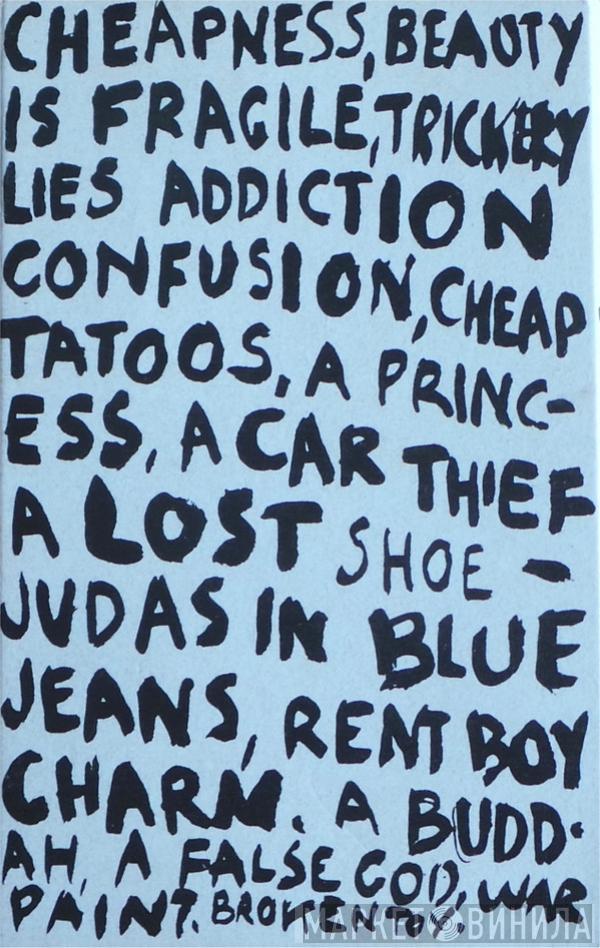 CHEAPNESS, BEAUTY
IS FRAGILE, TRICKERY
LIES ADDICTION
CONFUSION, CHEAP
TATOOS, A PRINC-
ESS, A CAR THIEF
A LOST SHOE -
JUDAS IN BLUE
JEANS, RENT BOY
CHARM. A BUDD-
AH, A FALSE GOD, WAR
PAINT. BROKEN
МАРКЕТ ВИНИЛА